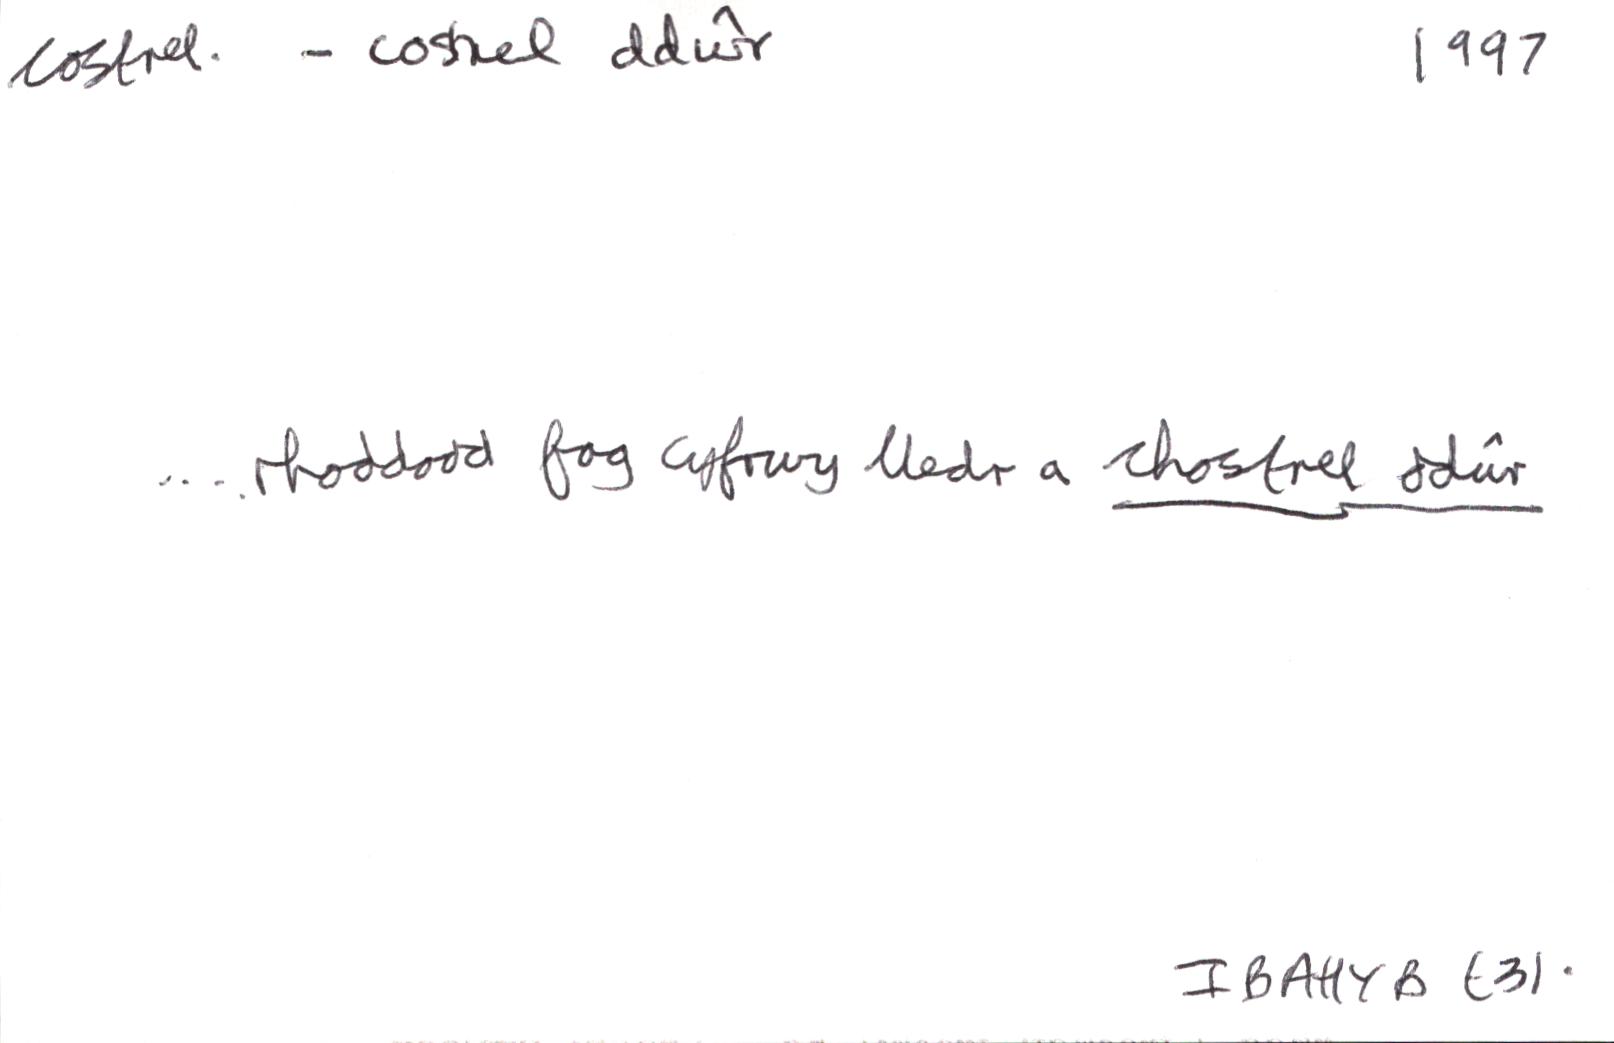 costrel. - costrel ddŵr 1997
....rhoddodd fag cyfrwy lledr a chostrel ddŵr
IBAHYB t31.